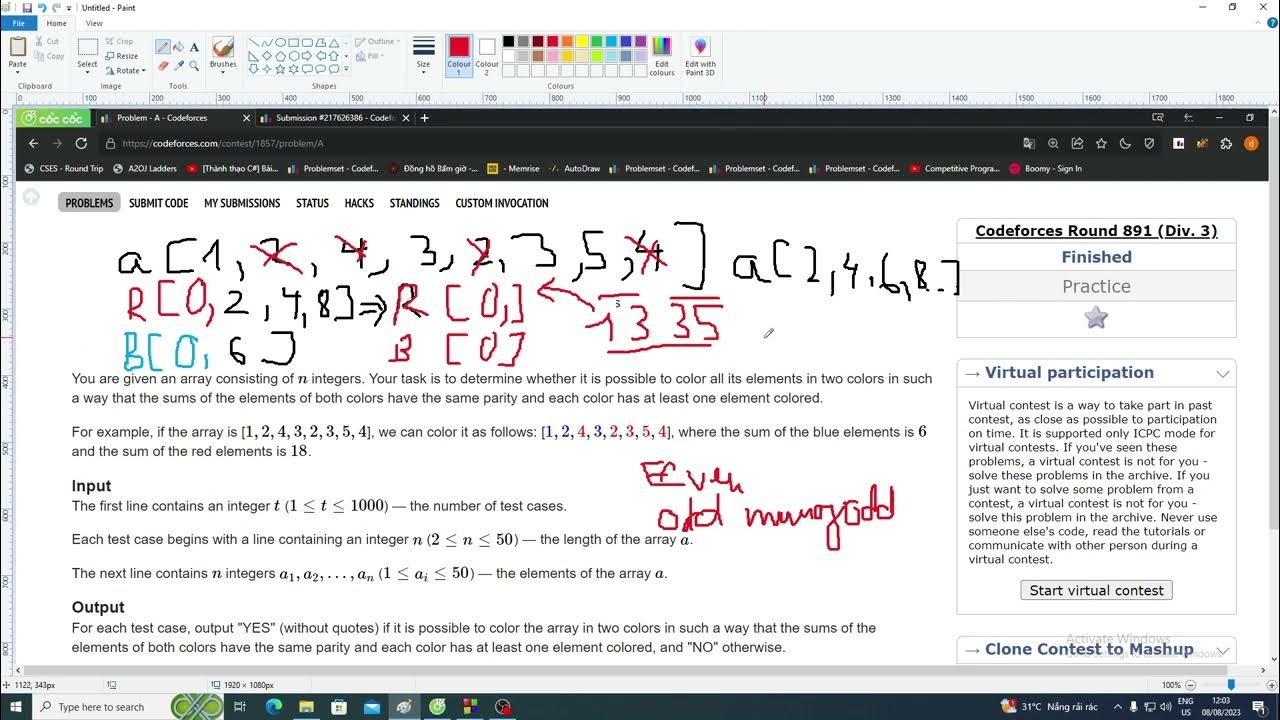 Untitled - Paint
File Home View
Paste Cut Copy Select Crop Resize Rotate Brushes Outline Fill Size Colour 1 Colour 2 Edit colours Edit with Paint 3D
Clipboard Image Tools Shapes Colours
0 100 200 300 400 500 600 700 800 900 1000 1100 1200 1300 1400 1500 1600 1700 1800
CỐC CỐC Problem - A - Codeforces Submission #217626386 - Codefo
https://codeforces.com/contest/1857/problem/A
CSES - Round Trip A2OJ Ladders [Thành thạo C#] Bài... Problemset - Codef... Đồng hồ Bấm giờ -... - Memrise AutoDraw Problemset - Codef... Problemset - Codef... Problemset - Codef... Competitive Progra... Boomy - Sign In
PROBLEMS SUBMIT CODE MY SUBMISSIONS STATUS HACKS STANDINGS CUSTOM INVOCATION
a[1, 2, 4, 3, 2, 3, 5, 4] a[2, 4, 6, 8]
R[0, 2, 4, 8] ⇒ R [0,] 13 35
B[0, 6] B [0]
You are given an array consisting of n integers. Your task is to determine whether it is possible to color all its elements in two colors in such
a way that the sums of the elements of both colors have the same parity and each color has at least one element colored.
For example, if the array is [1, 2, 4, 3, 2, 3, 5, 4], we can color it as follows: [1, 2, 4, 3, 2, 3, 5, 4], where the sum of the blue elements is 6
and the sum of the red elements is 18.
Even
odd
Input
The first line contains an integer t (1 ≤ t ≤ 1000) — the number of test cases.
Each test case begins with a line containing an integer n (2 ≤ n ≤ 50) — the length of the array a.
The next line contains n integers a1, a2, …, an (1 ≤ ai ≤ 50) — the elements of the array a.
Output
For each test case, output "YES" (without quotes) if it is possible to color the array in two colors in such a way that the sums of the
elements of both colors have the same parity and each color has at least one element colored, and "NO" otherwise.
Codeforces Round 891 (Div. 3)
Finished
Practice
→ Virtual participation
Virtual contest is a way to take part in past
contest, as close as possible to participation
on time. It is supported only ICPC mode for
virtual contests. If you've seen these
problems, a virtual contest is not for you -
solve these problems in the archive. If you
just want to solve some problem from a
contest, a virtual contest is not for you -
solve this problem in the archive. Never use
someone else's code, read the tutorials or
communicate with other person during a
virtual contest.
Start virtual contest
Activate Windows
→ Clone Contest to Mashup
1122, 343px 1920 × 1080px 100%
Type here to search 31°C Nắng rải rác ENG US 12:03 08/08/2023